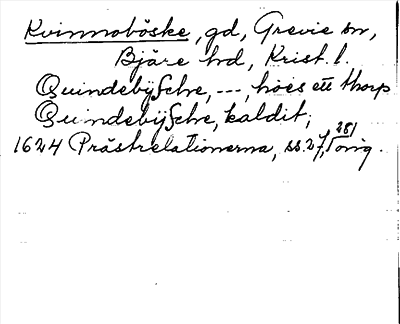 Kvinnoböske, gd, Grevie sn,
Bjäre hd, Krist. l.
Quindebÿsche, ---, hoes ett thorp
Quindebÿsche, kaldit;
1624 Prästrelationerna, ss. 27, 281 orig.